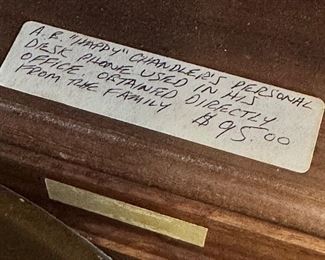 A.B. "HAPPY" CHANDLER'S PERSONAL
DESK PHONE USED IN HIS
OFFICE. OBTAINED DIRECTLY
FROM THE FAMILY $95.00